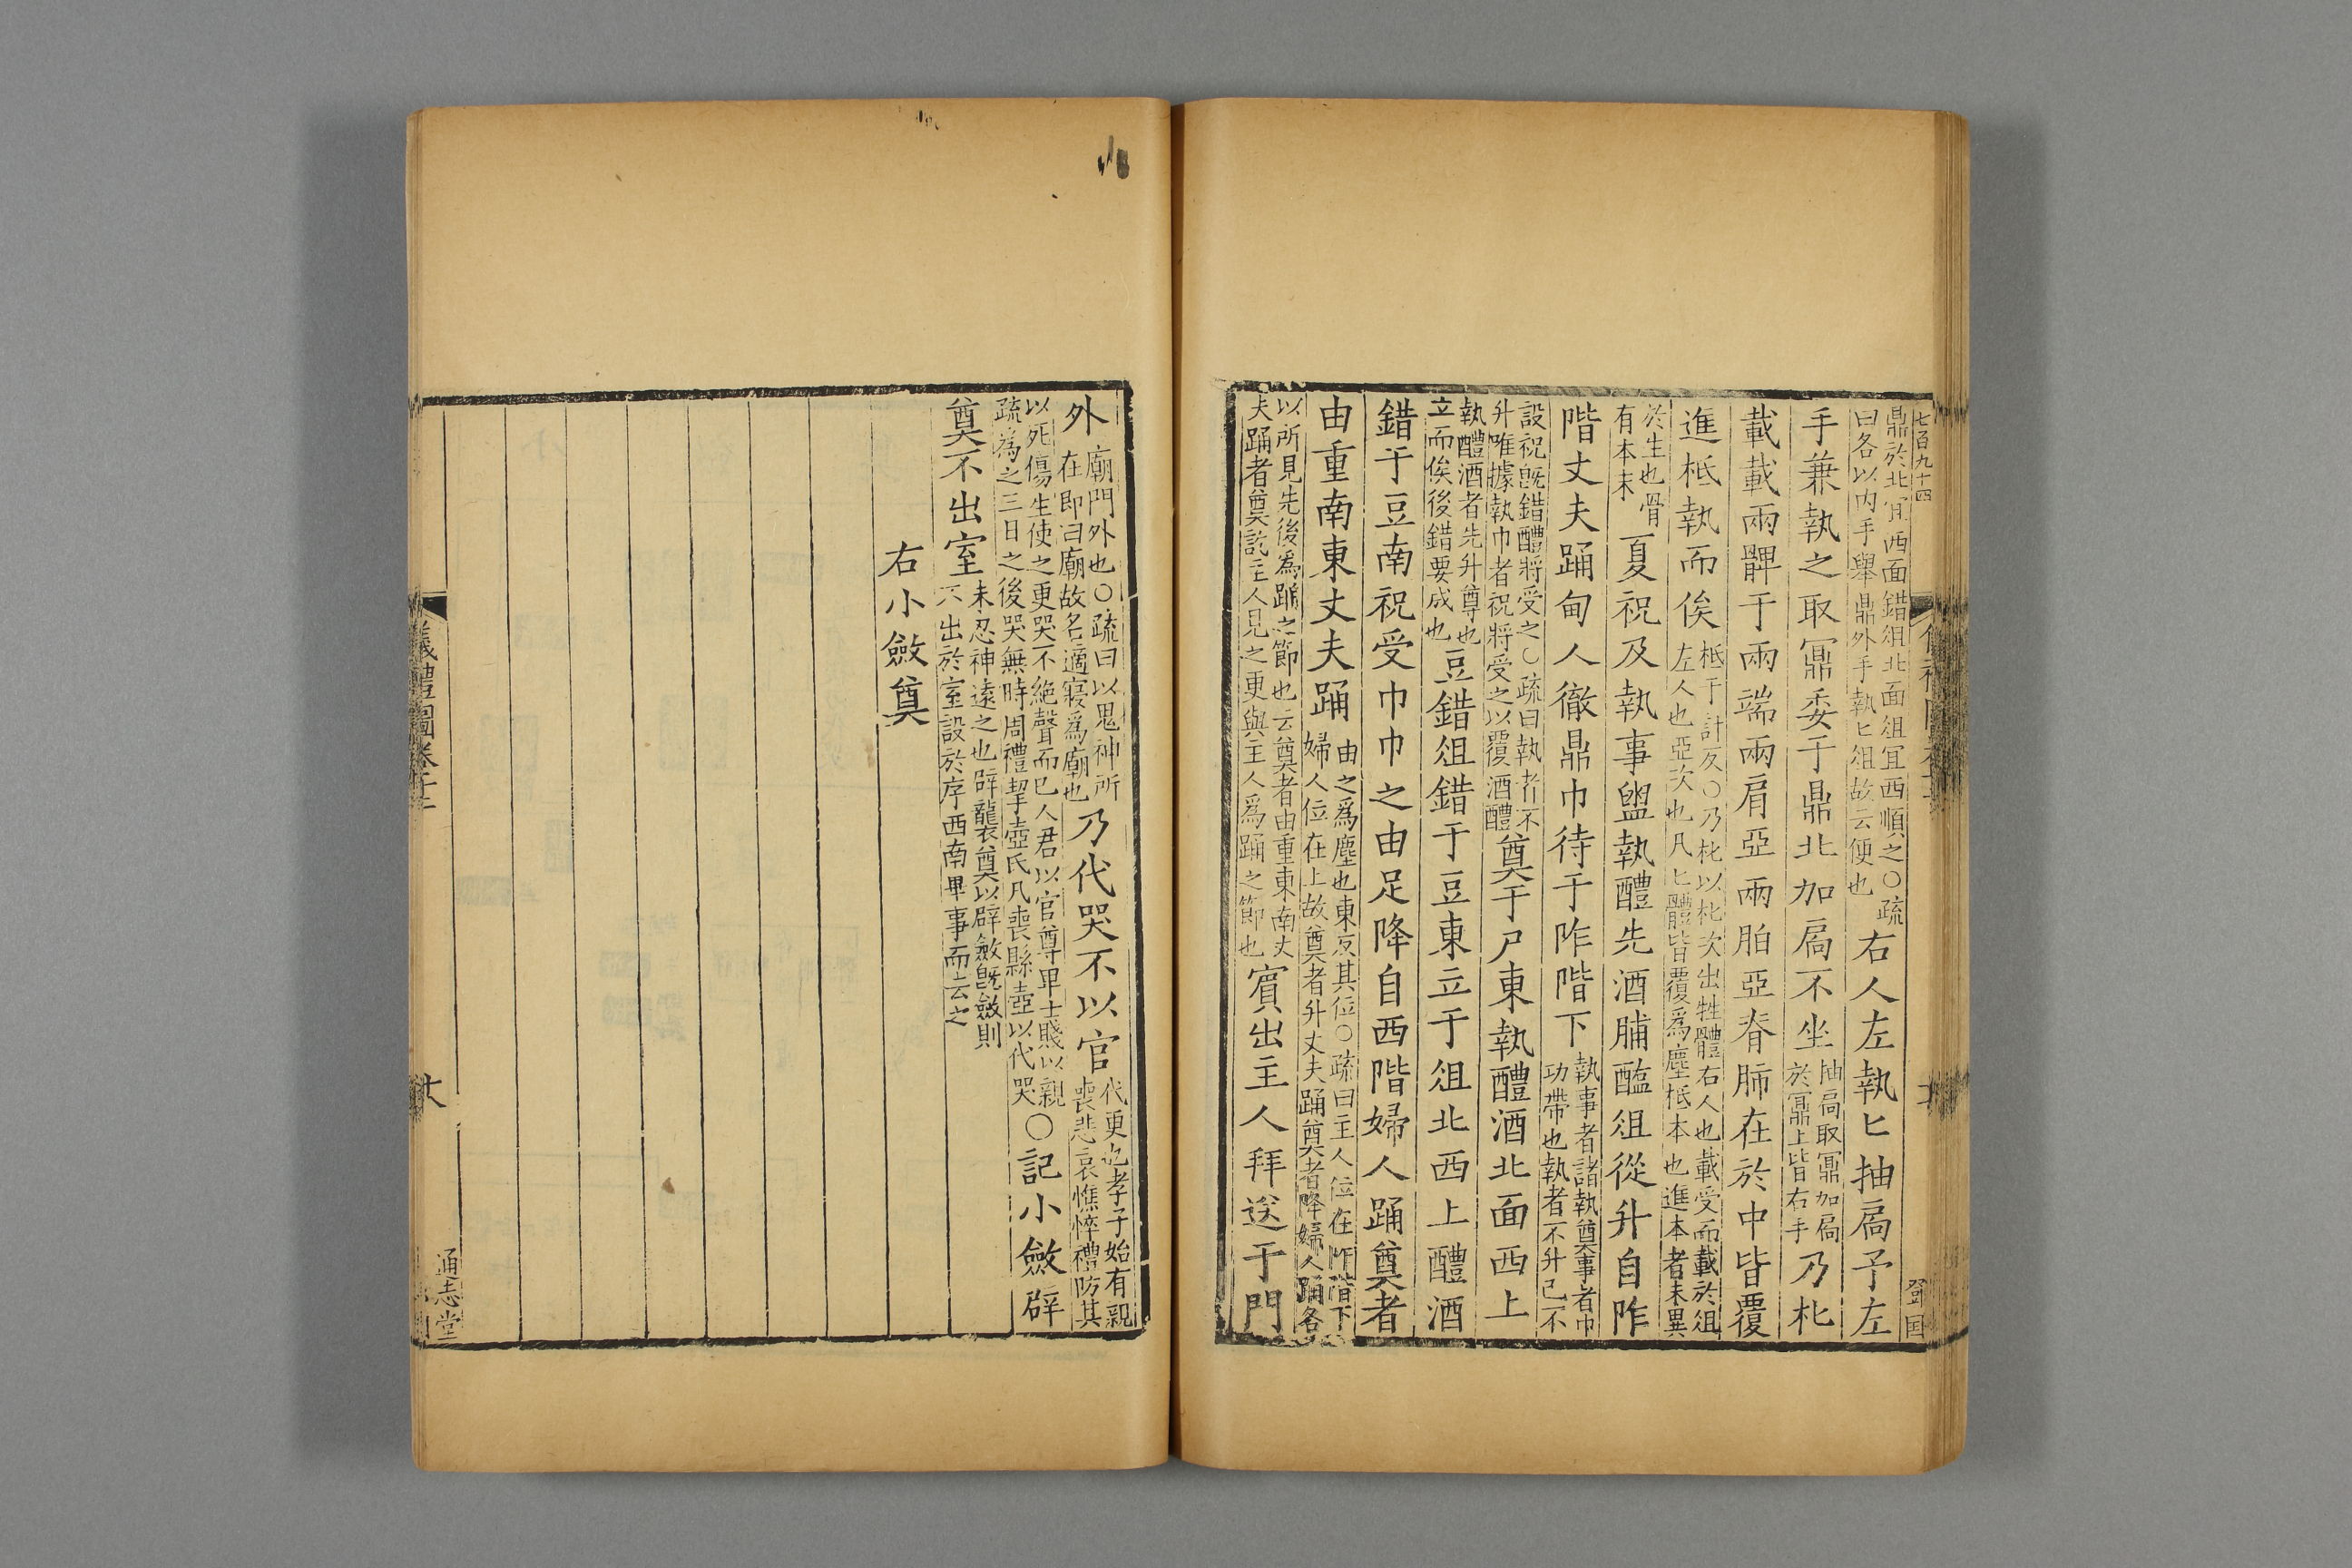 七百九十四
鼎於北宜西面錯俎北面俎宜西順之〇疏
曰各以內手舉鼎外手執匕俎故云便也
右人左執匕抽扃予左
手兼執之取鼏委于鼎北加扃不坐
抽扃取鼏加扃
於鼏上皆右手
乃朼
載載兩髀于兩端兩肩亞兩胉亞脊肺在於中皆覆
進柢執而俟
柢丁計反〇乃朼以朼次出牲體右人也載受而載於俎
左人也亞次也凡匕體皆覆為塵柢本也進本者未異
於生也骨
有本末
夏祝及執事盥執醴先酒脯醢俎從升自阼
階丈夫踊甸人徹鼎巾待于阼階下
執事者諸執奠事者巾
功帶也執者不升己不
設祝旣錯醴將受之〇疏曰執者不
升唯據執巾者祝將受之以覆酒醴
奠于尸東執醴酒北面西上
執醴酒者先升尊也
立而俟後錯要成也
豆錯俎錯于豆東立于俎北西上醴酒
錯于豆南祝受巾巾之由足降自西階婦人踊奠者
由重南東丈夫踊
由之為塵也東反其位〇疏曰主人位在阼階下
婦人位在上故奠者升丈夫踊奠者降婦人踊各
以所見先後為踊之節也云奠者由重東南丈
夫踊者奠訖主人見之更與主人為踊之節也
賓出主人拜送于門
外
廟門外也〇疏曰以鬼神所
在即曰廟故名適寢為廟也
乃代哭不以官
代更也孝子始有親
喪悲哀憔悴禮防其
以死傷生使之更哭不絕聲而已人君以官尊卑士賤以親
疏為之三日之後哭無時周禮挈壺氏凡喪縣壺以代哭
〇記小斂辟
奠不出室
未忍神遠之也辟襲奠以辟斂旣斂則
不出於室設於序西南畢事而去之
右小斂奠
儀禮圖卷
通志堂